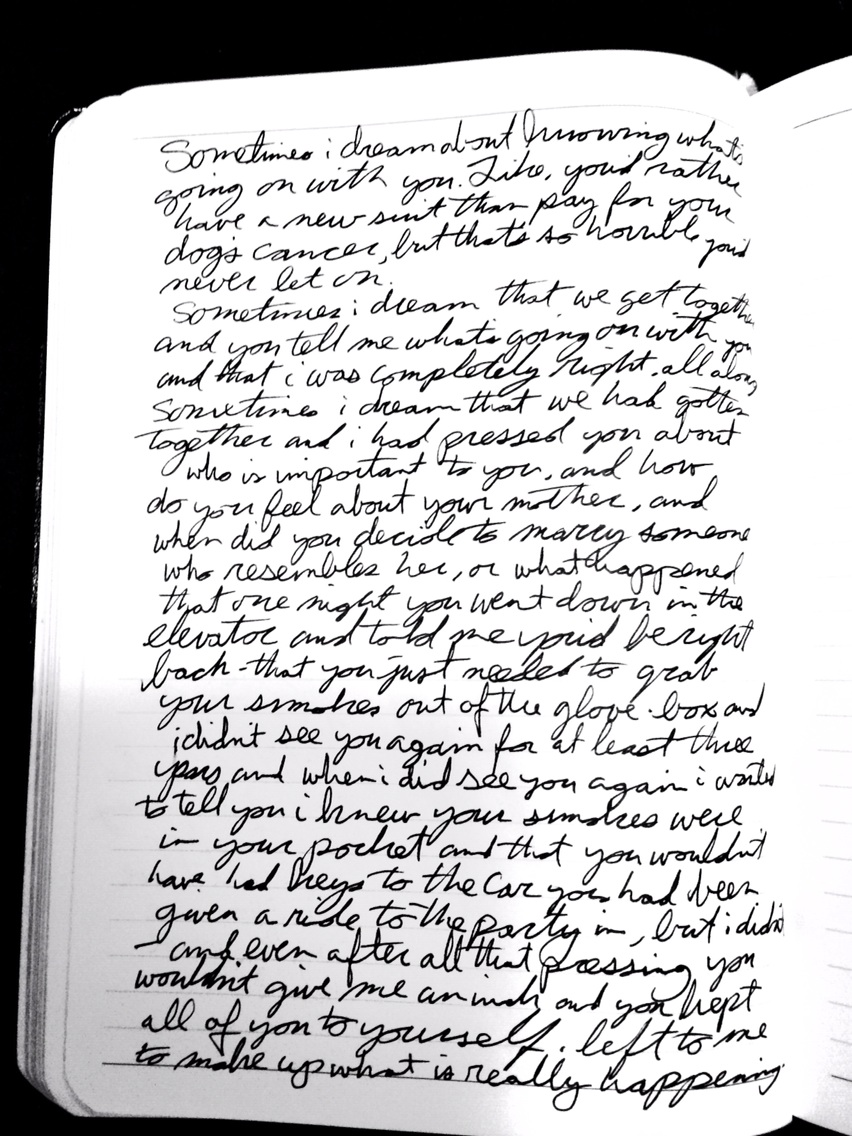 Sometimes i dream about knowing what's
going on with you. Like, you'd rather
have a new suit than pay for your
dog's cancer, but that's so horrible you'd
never let on.
Sometimes i dream that we get together
and you tell me what's going on with you
and that i was completely right. all along
Sometimes i dream that we had gotten
together and i had pressed you about
who is important to you, and how
do you feel about your mother, and
when did you decide to marry someone
who resembles her, or what happened
that one night you went down in the
elevator and told me you'd be right
back - that you just needed to grab
your smokes out of the glove box and
i didn't see you again for at least three
years, and when i did see you again i wanted
to tell you i knew your smokes were
in your pocket and that you wouldn't
have had keys to the car you had been
given a ride to the party in, but i didn't
- and even after all that pressing you
wouldn't give me an inch and you kept
all of you to yourself. left to me
to make up what is really happening